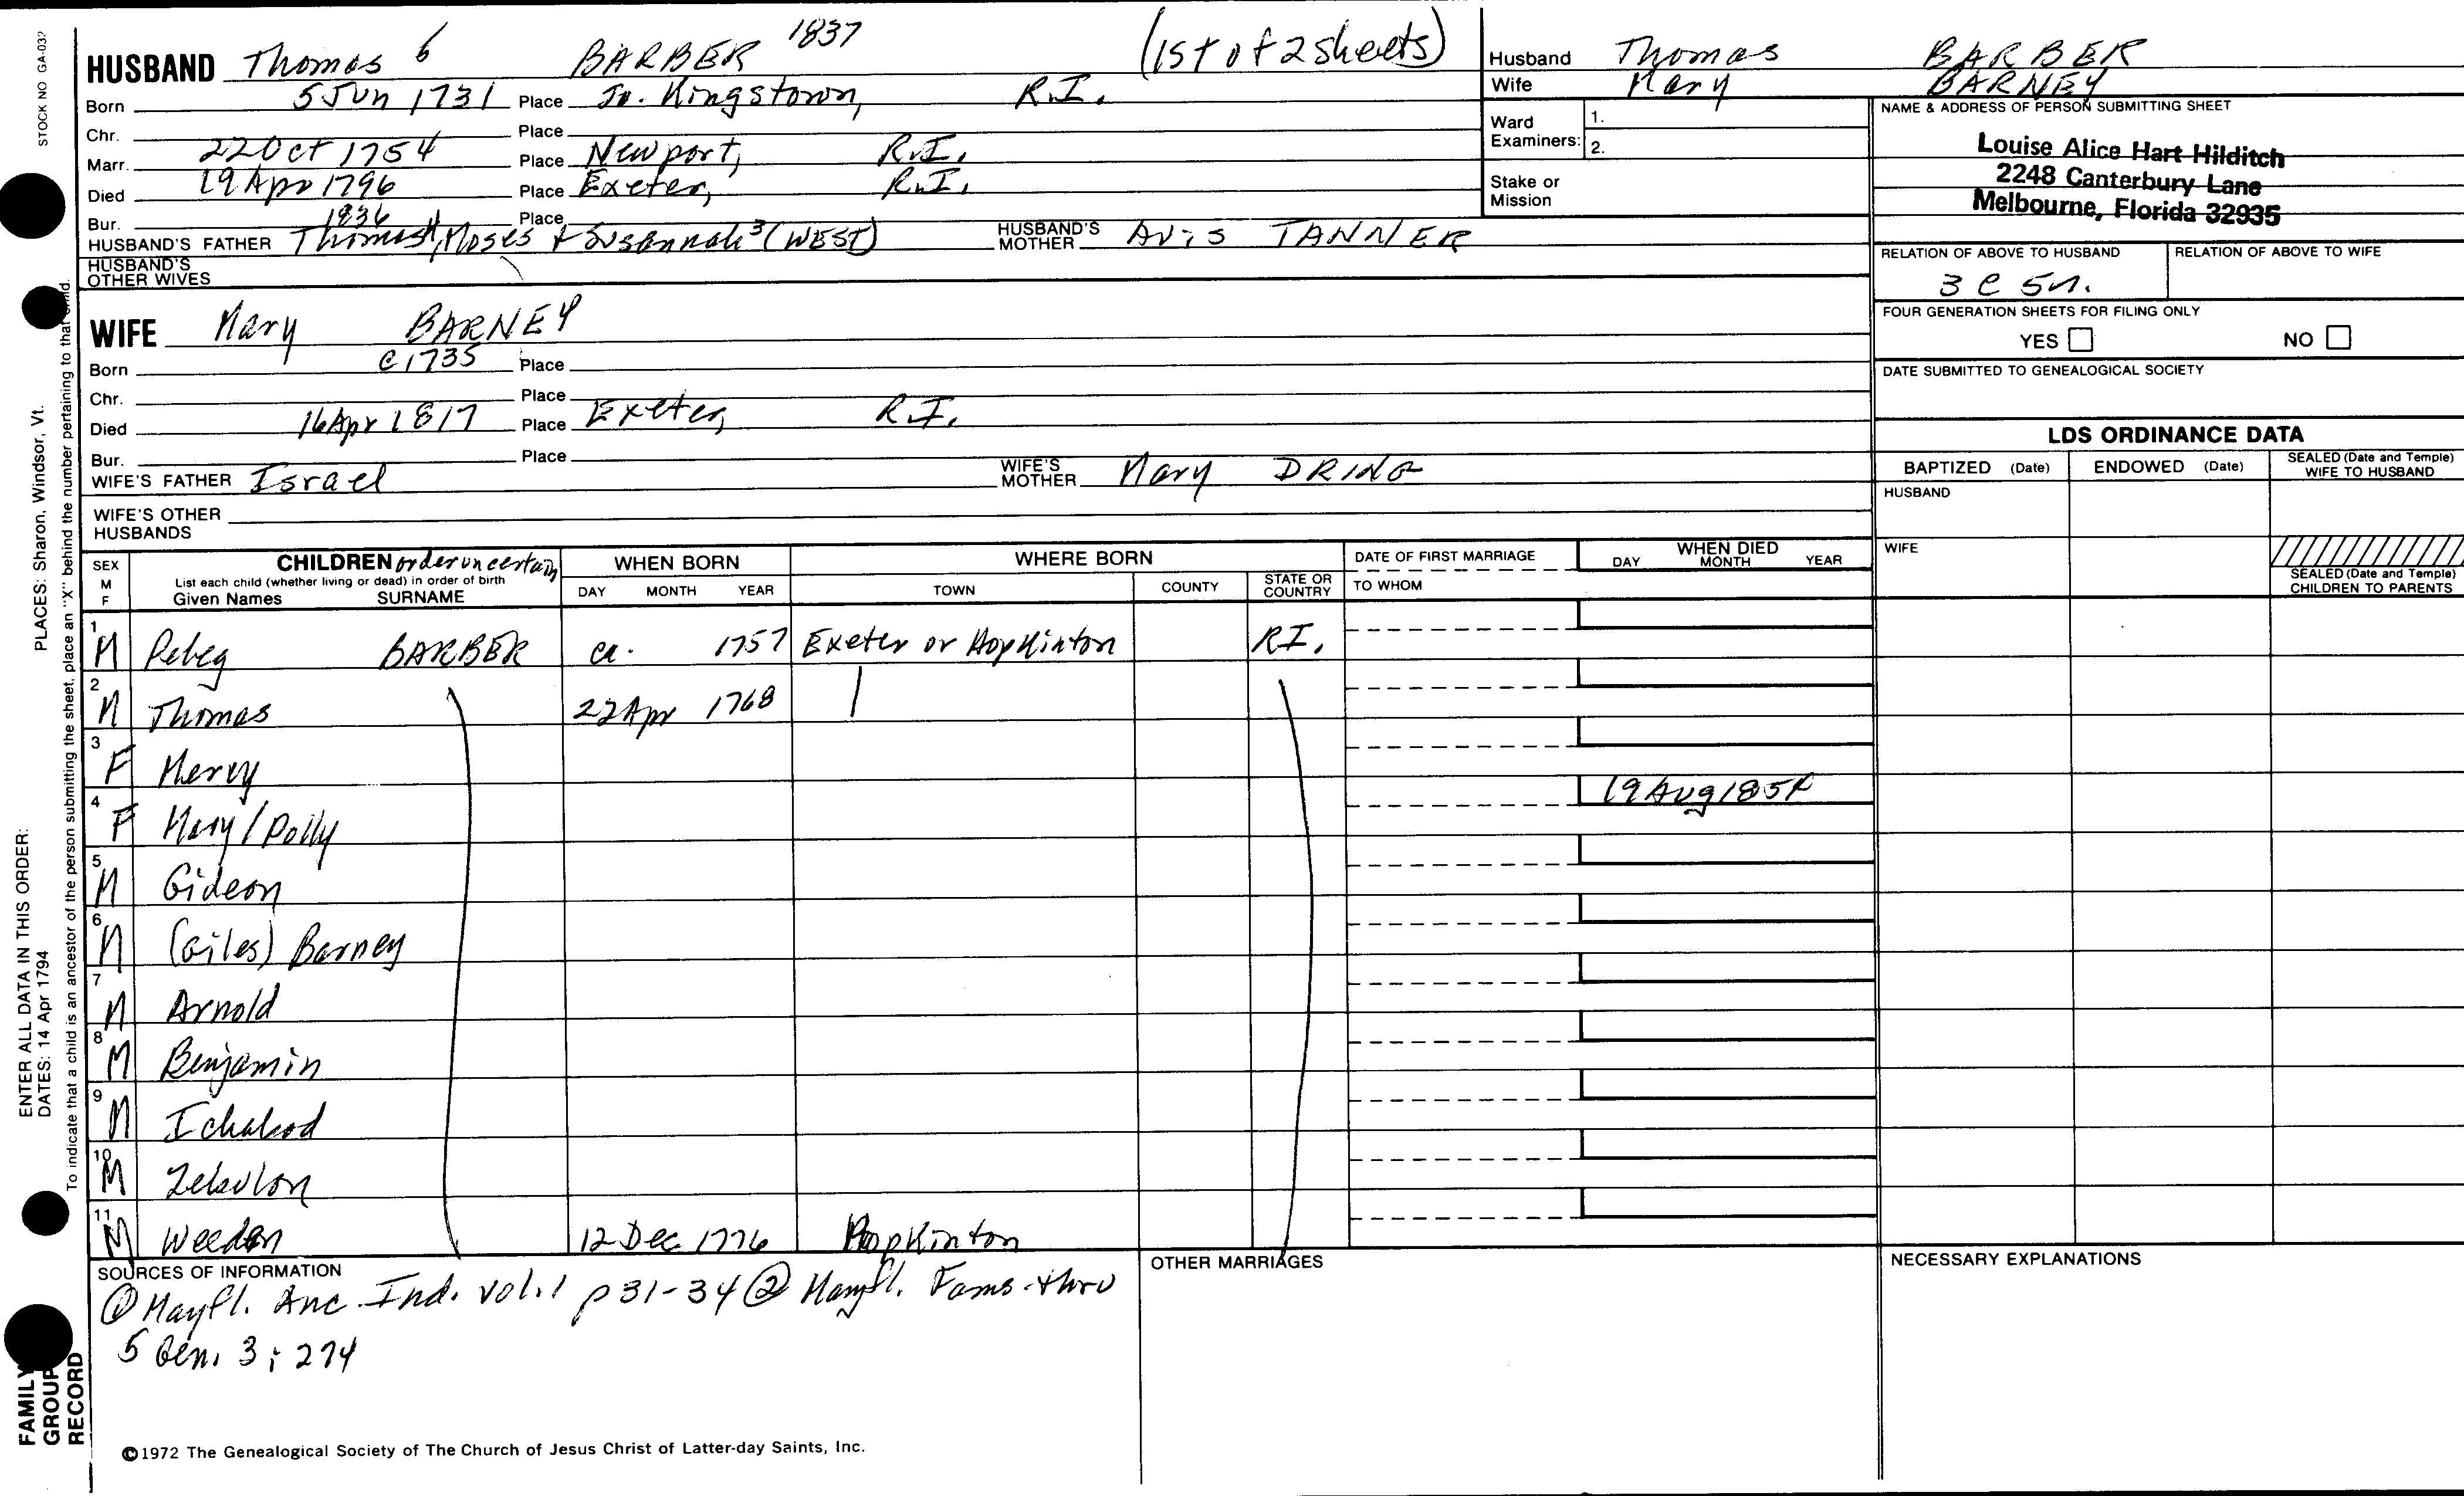 STOCK NO GA-032
HUSBAND Thomas 6 BARBER 1837 (1st of 2 sheets)
Born 5 Jun 1731 Place So. Kingstown, R.I.
Chr. Place
Marr. 22 Oct 1754 Place Newport, R.I.
Died 19 Apr 1796 Place Exeter, R.I.
Bur. Place
1836
HUSBAND'S FATHER Thomas, Moses + Susannah 3 (WEST) HUSBAND'S MOTHER Avis TANNER
HUSBAND'S OTHER WIVES
WIFE Mary BARNEY
Born c 1735 Place
Chr. Place
Died 16 Apr 1817 Place Exeter, R.I.
Bur. Place
WIFE'S FATHER Israel WIFE'S MOTHER Mary DRING
WIFE'S OTHER HUSBANDS
Husband Thomas BARBER
Wife Mary BARNEY
Ward Examiners: 1.
2.
Stake or Mission
NAME & ADDRESS OF PERSON SUBMITTING SHEET
Louise Alice Hart Hilditch
2248 Canterbury Lane
Melbourne, Florida 32935
RELATION OF ABOVE TO HUSBAND RELATION OF ABOVE TO WIFE
3 C 5r.
FOUR GENERATION SHEETS FOR FILING ONLY
YES NO
DATE SUBMITTED TO GENEALOGICAL SOCIETY
LDS ORDINANCE DATA
BAPTIZED (Date) ENDOWED (Date) SEALED (Date and Temple) WIFE TO HUSBAND
HUSBAND
WIFE
SEALED (Date and Temple) CHILDREN TO PARENTS
SEX M F
CHILDREN order uncertain
List each child (whether living or dead) in order of birth
Given Names SURNAME
WHEN BORN
DAY MONTH YEAR
WHERE BORN
TOWN COUNTY STATE OR COUNTRY
DATE OF FIRST MARRIAGE
TO WHOM
WHEN DIED
DAY MONTH YEAR
1 M Peleg BARBER ca. 1757 Exeter or Hopkinton R.I.
2 M Thomas 22 Apr 1768
3 F Mercy
4 F Mary/Polly 19 Aug 1854
5 M Gideon
6 M (Giles) Barney
7 M Arnold
8 M Benjamin
9 M Ichabod
10 M Zebulon
11 M Weeden 12 Dec 1776 Hopkinton
SOURCES OF INFORMATION
① Mayfl. Anc. Ind. vol. 1 p 31-34 ② Mayfl. Fams. thru
5 Gen. 3: 274
OTHER MARRIAGES
NECESSARY EXPLANATIONS
©1972 The Genealogical Society of The Church of Jesus Christ of Latter-day Saints, Inc.
ENTER ALL DATA IN THIS ORDER:
DATES: 14 Apr 1794 PLACES: Sharon, Windsor, Vt.
To indicate that a child is an ancestor of the person submitting the sheet, place an "X" behind the number pertaining to that child.
FAMILY
GROUP
RECORD